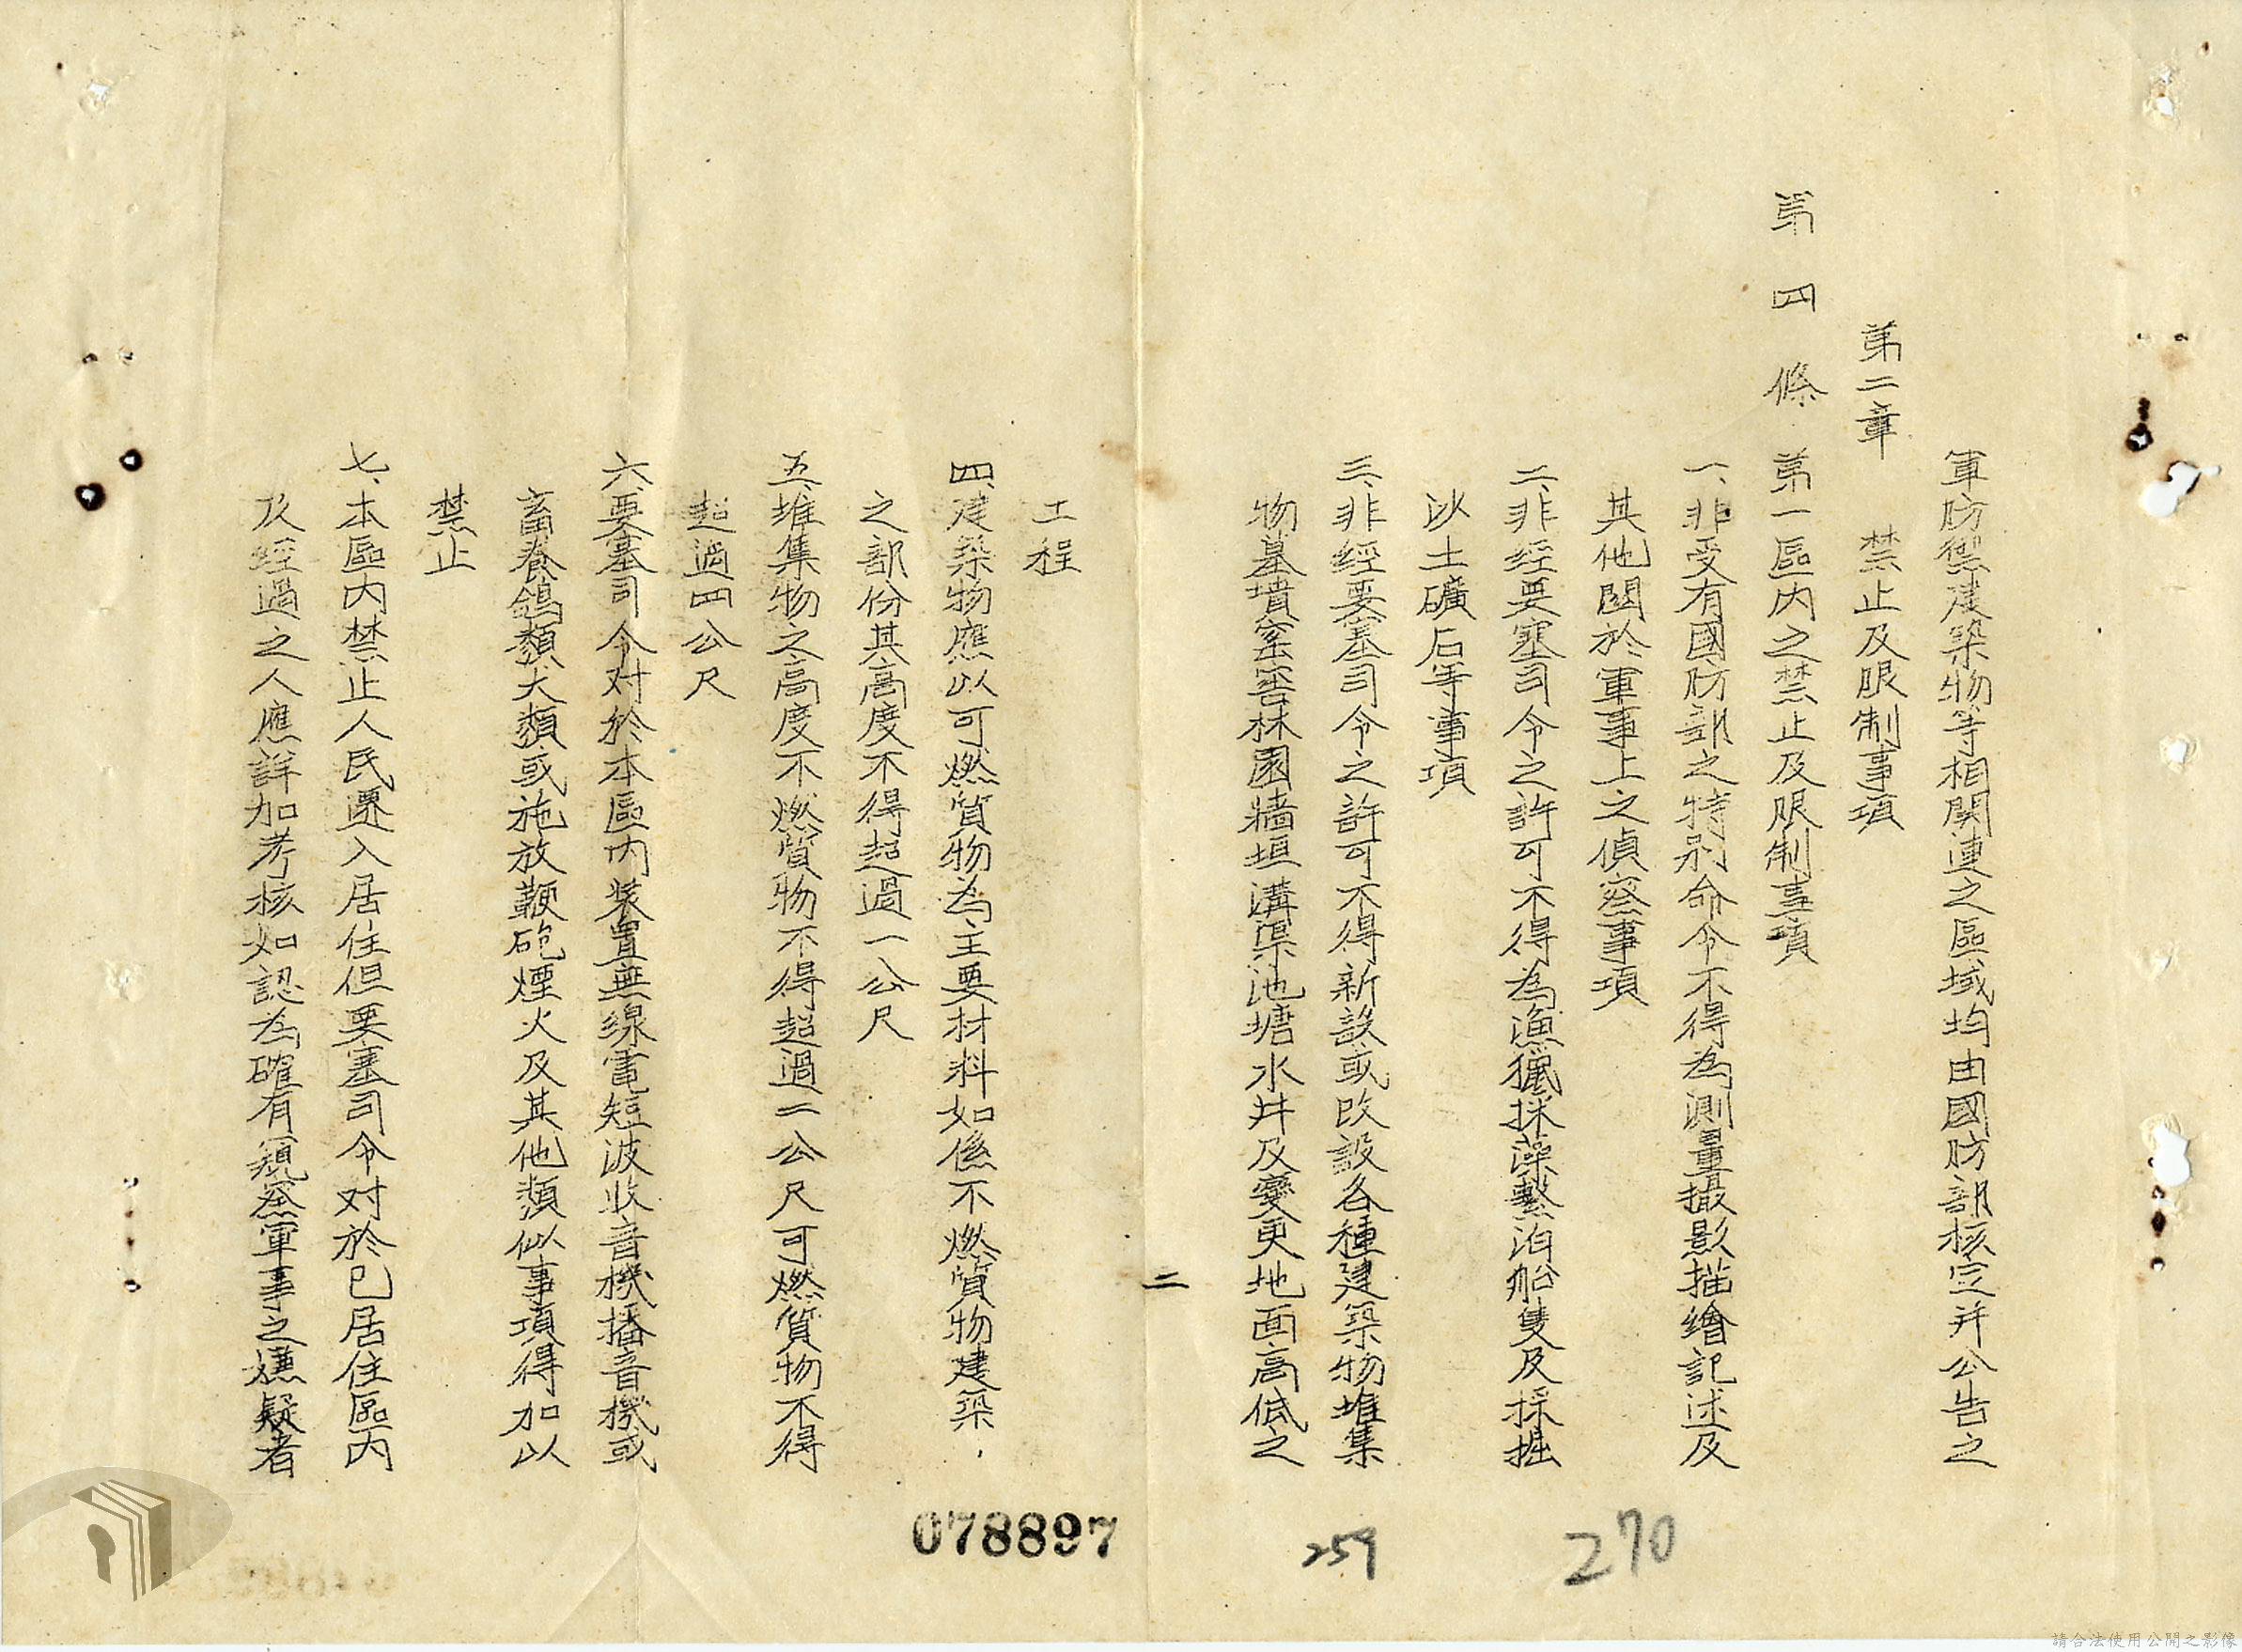 軍防禦建築物等相関連之區域均由國防部核定并公告之
第二章　禁止及限制事項
第四條　第一區内之禁止及限制事項
一、非受有國防部之特別命令不得為測量撮影描繪記述及
其他関於軍事上之偵察事項
二、非經要塞司令之許可不得為漁獵採藻繫泊船隻及採掘
沙土礦石等事項
三、非經要塞司令之許可不得新設或改設各種建築物堆集
物墓墳窑窖林園牆垣溝渠池塘水井及變更地面高低之
二
工程
四、建築物應以可燃質物為主要材料如係不燃質物建築，
之部份其高度不得超過一公尺
五、堆集物之高度不燃質物不得超過二公尺可燃質物不得
超過四公尺
六、要塞司令对於本區内装置無線電短波收音機播音機或
畜養鴿類犬類或施放鞭砲煙火及其他類似事項得加以
禁止
七、本區内禁止人民遷入居住但要塞司令对於已居住區内
及經過之人應詳加考核如認為確有窺察軍事之嫌疑者
078897
259
270
請合法使用公開之影像